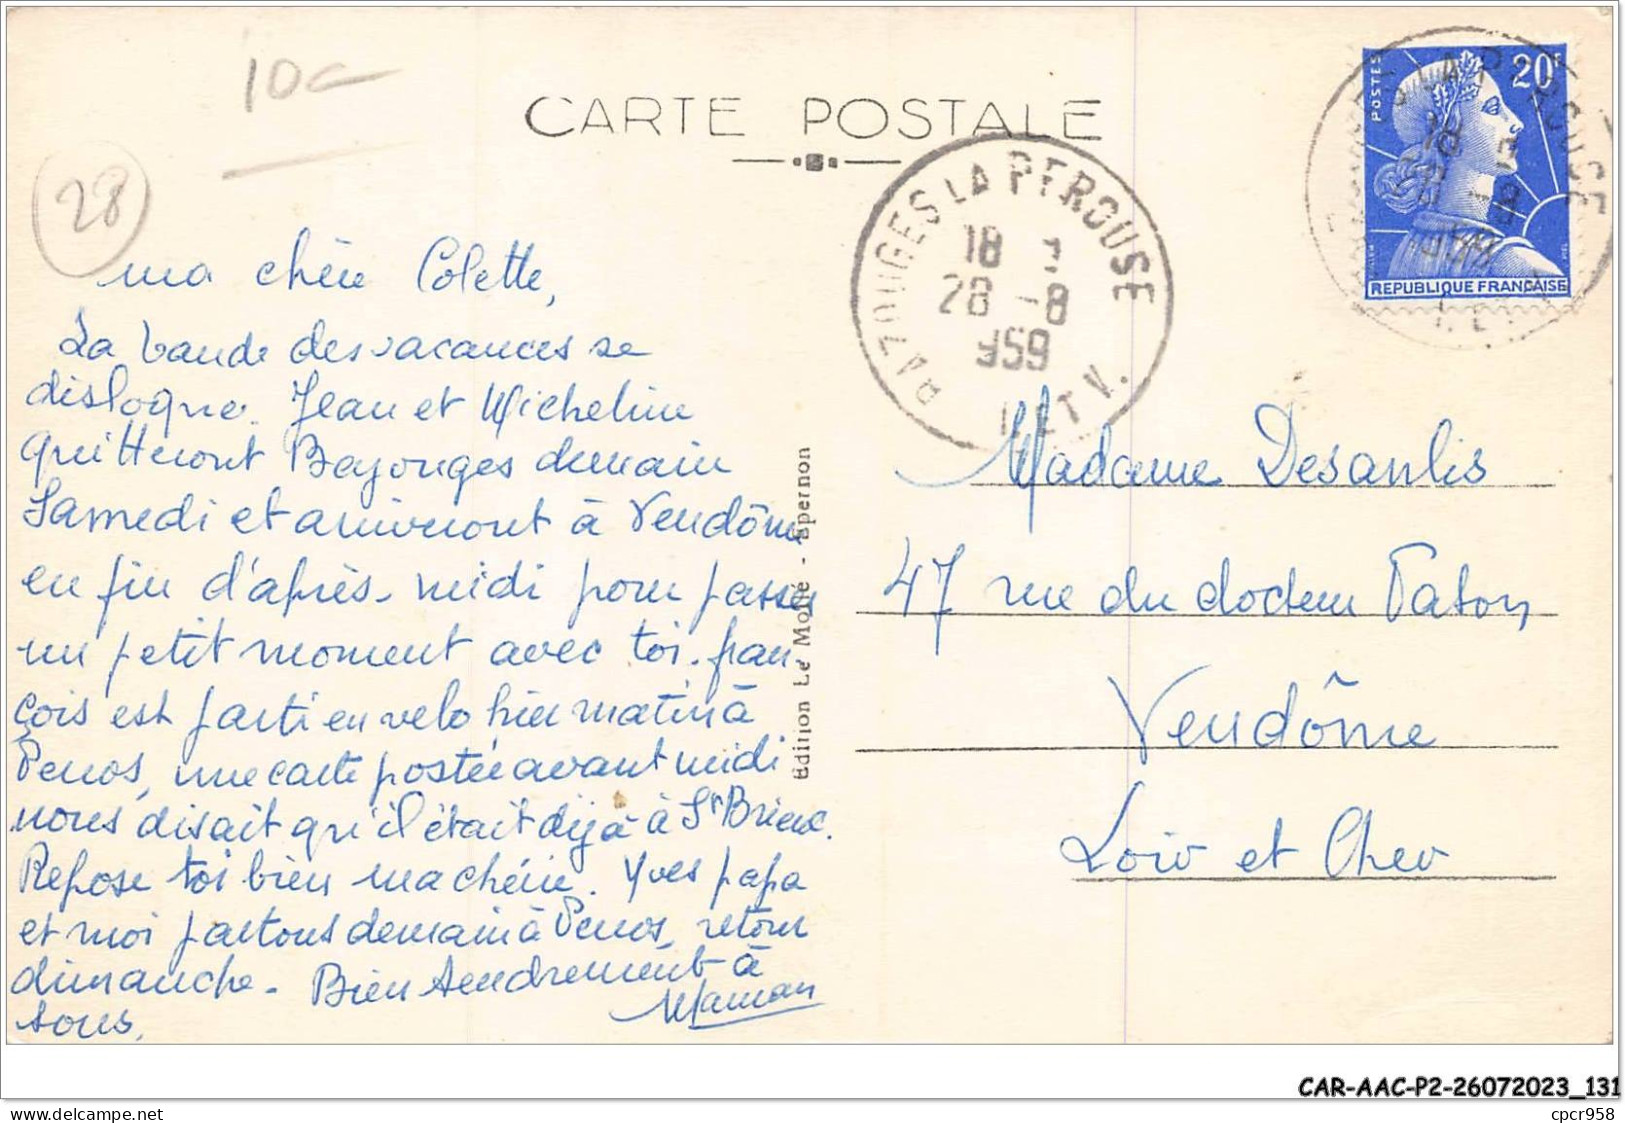 10c
CARTE POSTALE
28
POSTES
20F
REPUBLIQUE FRANÇAISE
BAZOUGES LA PEROUSE
18
28 -8
959
I. ET V.
ma chère Colette,
La bande des vacances se
disloque. Jean et Micheline
quitteront Bazouges demain
Samedi et arriveront à Vendôme
en fin d'après-midi pour passer
un petit moment avec toi. fran
çois est parti en velo hier matin à
Penos, une carte postée avant midi
nous disait qu'il était déjà à St Brieuc.
Repose toi bien ma chérie. Yves papa
et moi partons demain à Penos, retour
dimanche. Bien tendrement à
tous,
Maman
Edition Le Moué - Epernon
Madame Desanlis
47 rue du docteur Faton
Vendôme
Loir et Cher
CAR-AAC-P2-26072023_131
cpcr958